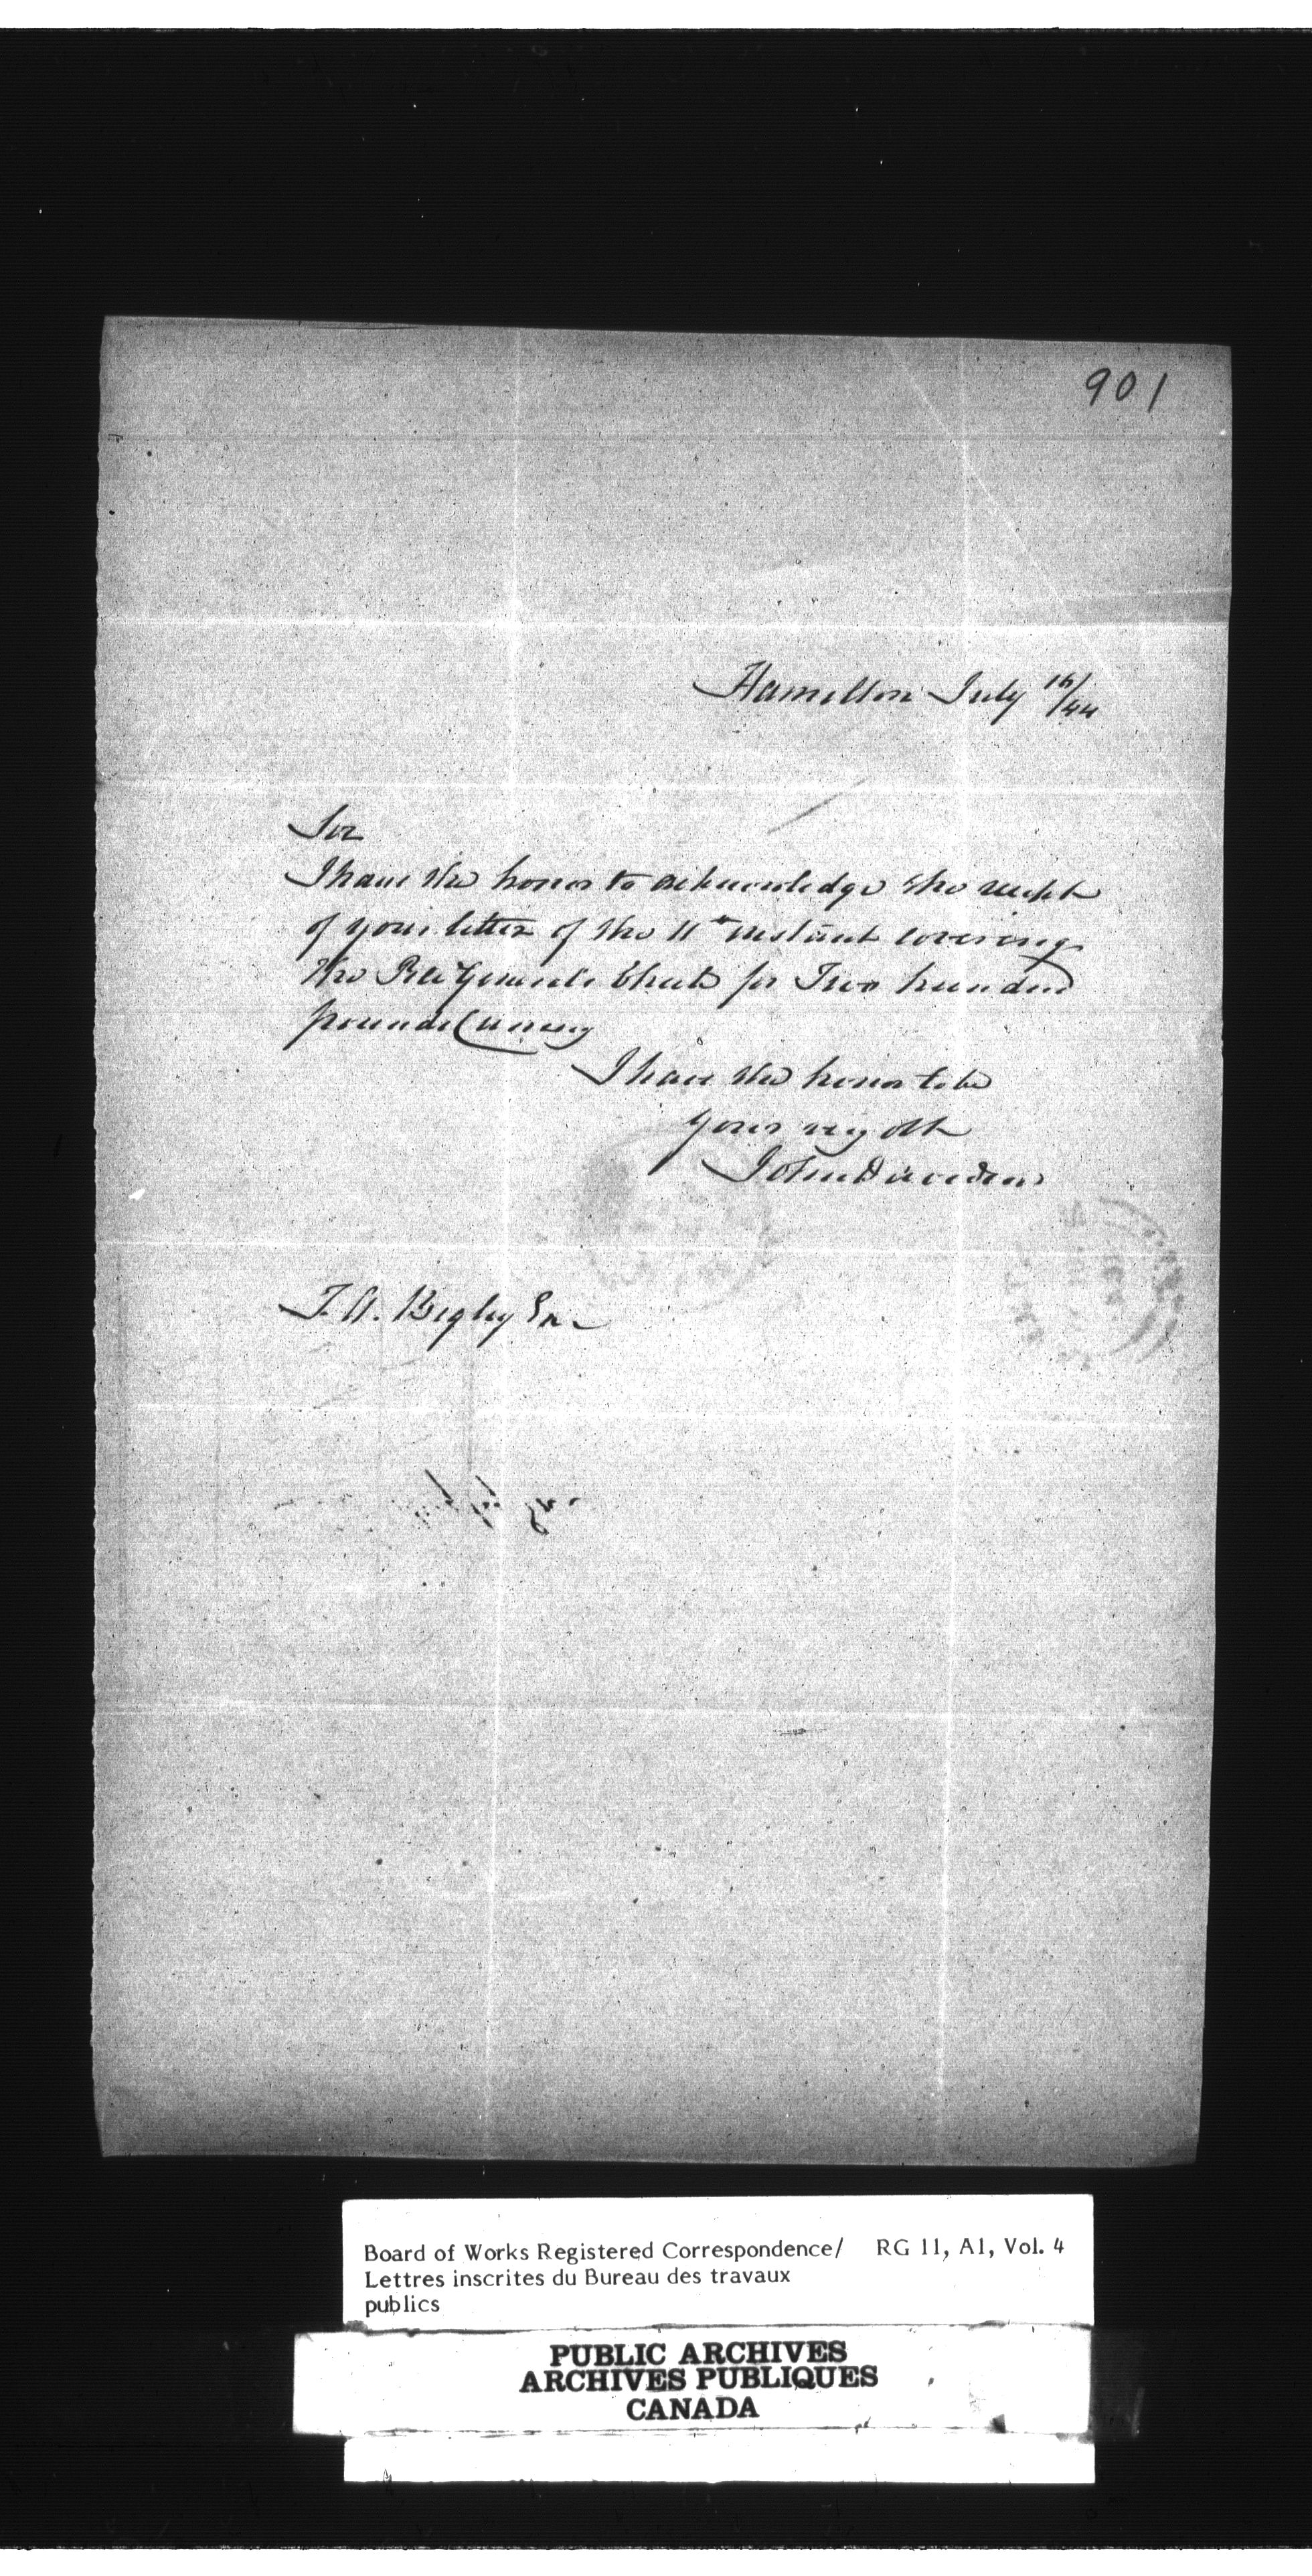 901
Hamilton July 16/44
Sir
I have the honor to acknowledge the receipt
of your letter of the 11th instant covering
the Rec Generals Check for Two hundred
pounds Curr[enc]y
I have the honor to be
Your
John Davidson
T. A. Begly Esq
Board of Works Registered Correspondence/ RG 11, A1, Vol. 4
Lettres inscrites du Bureau des travaux
publics
PUBLIC ARCHIVES
ARCHIVES PUBLIQUES
CANADA